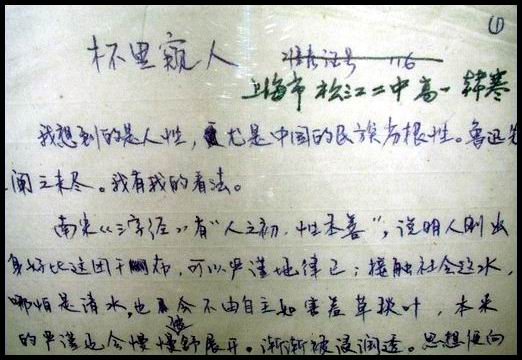 ①
杯里窥人 准考证号 116
上海市松江二中高一 韩寒
我想到的是人性,尤是中国的民族劣根性。鲁迅先
阐之未尽。我有我的看法。
南宋《三字经》有“人之初,性本善”,说明人刚出
身好比这团干布,可以严谨地律己;接触社会这水,
哪怕是清水,也会不由自主如害羞草叶,本来
的严谨也会慢慢被舒展开,渐渐被浸润透。思想便向